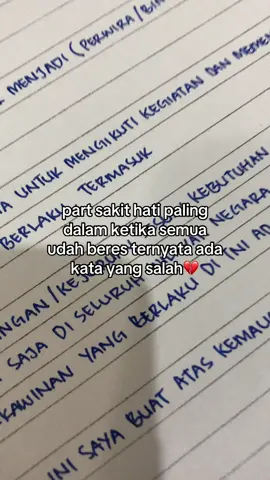 MENJADI (PERWIRA/BIN
A UNTUK MENGIKUTI KEGIATAN DAN MEMEN
BERLAKU TERMASUK
part sakit hati paling
dalam ketika semua
udah beres ternyata ada
kata yang salah💔
KEBUTUHAN
SAJA DI SELURUH NEGARA
KAWINAN YANG BERLAKU DI INI AD
INI SAYA BUAT ATAS KEMAU